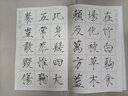 在竹白駒食
場化被草木
賴及萬方蓋
此身髮四大
五常恭惟鞠
養豈敢毀傷